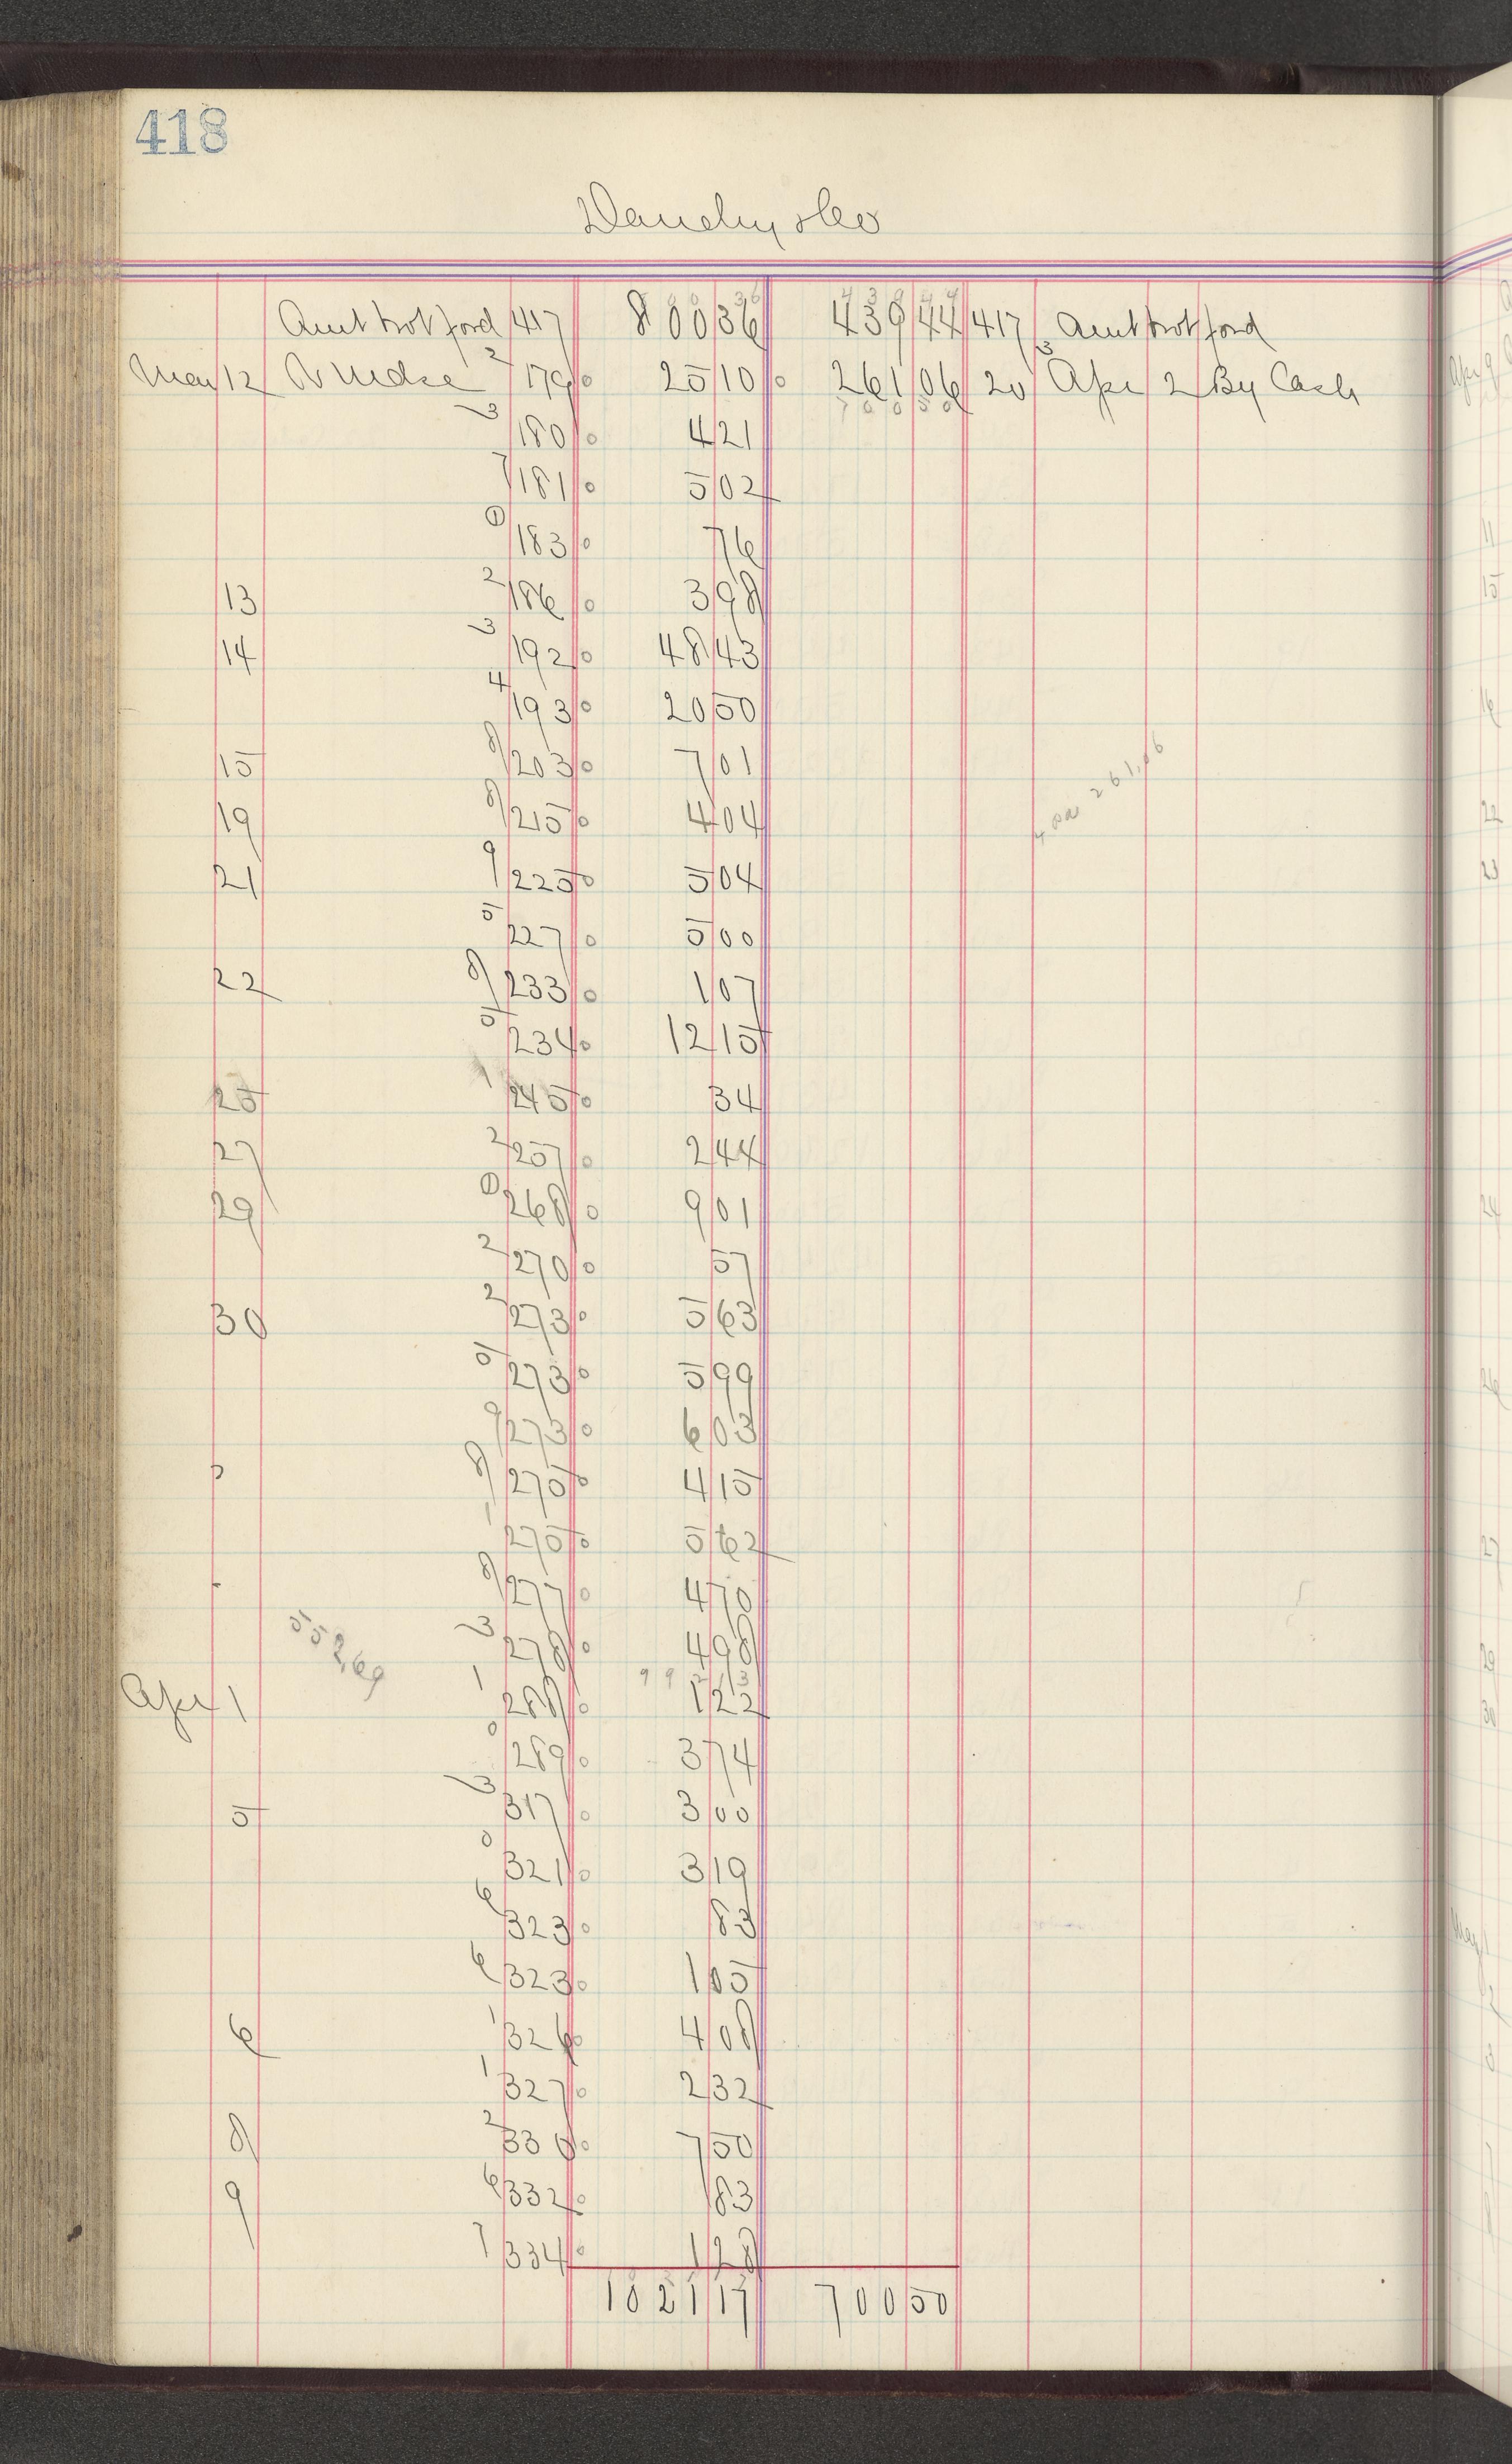 418
Amt brot ford 417 800 36 439 44 417 Amt brot ford
Mar 12 Mdse 2 179 25 10 261 06 20 Apr 2 By Cash
3 180 4 21
7 181 5 02
1 183 76
13 2 186 3 98
14 3 192 48 43
4 193 20 50
15 8 203 7 01
19 8 215 4 04
21 9 225 5 04
5 227 5 00
22 8 233 1 07
5 234 12 15
25 1 245 34
27 2 257 2 44
29 1 268 9 01
2 270 57
30 2 273 5 63
5 273 5 99
9 273 6 03
8 275 4 15
1 275 5 62
8 277 4 70
3 278 4 98
552,69
Apr 1 1 288 1 22
0 289 3 74
5 3 317 3 00
0 321 3 19
6 323 83
6 323 1 05
6 1 326 4 08
1 327 2 32
8 2 330 7 50
9 6 332 83
7 334 1 28
1021 17 700 50
261.06